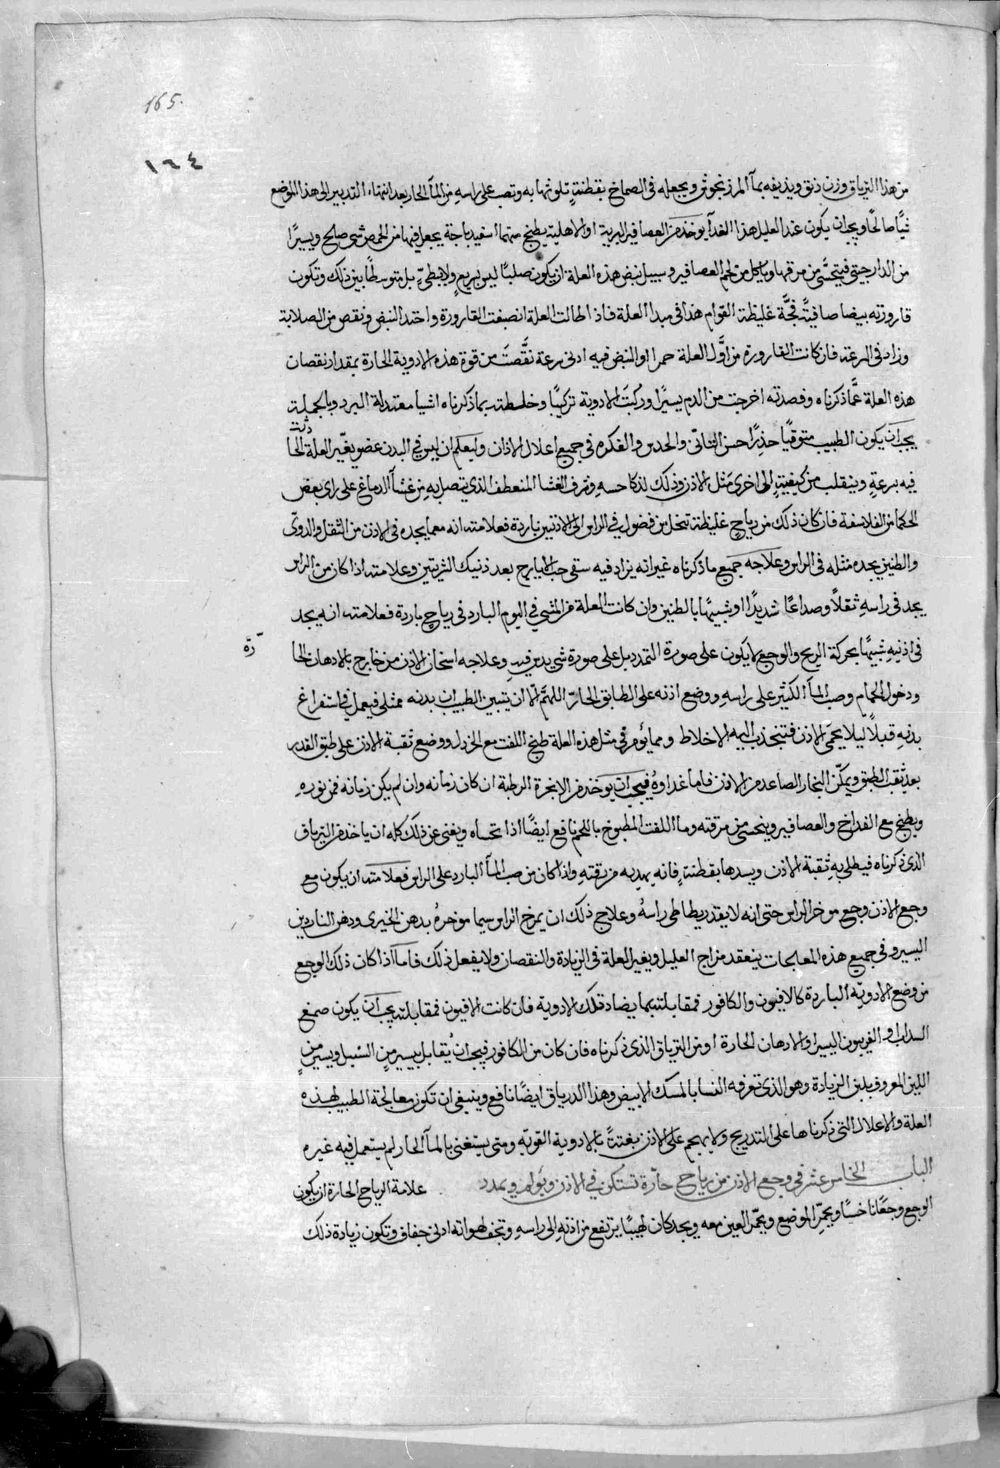 165.
١٦٤
من هذا الترياق وزن دنق ويذيفه بمآ المرزنجوش ويجعله في الصماخ بقطنة تلوثها به وتصب على راسه من المآ الحار بعد انتهاء التدبير الى هذا الموضع
شيًا صالحًا ويجب ان يكون عند العليل هذا الغدآ يوخذ من العصافير البرية او الاهلية يطبخ منها اسفيدباجة يجعل فيها من الحمص شي صلح ويسيرًا
من الدارجيني فيتحسّى من مرقها وياكل من لحم العصافير وسبيل نبض هذه العلة ان يكون صلبًا ليس بسريع ولا بطيء بل متوسطًا بين ذلك وتكون
قارورته بيضا صافية فجّة غليظة القوام هذا في مبدا العلة فاذا طالت العلة انصبغت القارورة واحتد النبض ونقص من الصلابة
وزاد في السرعة فان كانت القارورة من اوّل العلة حمرا والنبض فيه ادنى سرعة نقّصت من قوة هذه الادوية الحارة بمقدار نقصان
هذه العلة عمّا ذكرناه وفصدته اخرجت من الدم يسيرًا وركّبت الادوية تركيبًا وخلطته بما ذكرناه اشيا معتدلة البرد وبالجملة
يجب ان يكون الطبيب متوقيًا حذرًا حسن التاتي والحدس والفكره في جميع اعلال الاذان وليعلم ان ليس في البدن عضو يغيّر العلة الحا
دثة
فيه بسرعة وينقلب من كيفية الى اخرى مثل الاذن وذلك لذكا حسه وشرف الغشا المنعطف الذي يتصل به من غشآ الدماغ على راي بعض
الحكما من الفلاسفة فان كان ذلك من رياح غليظة تنحل من فضول في الراس الى الاذنين باردة فعلامته انه مهما يجده في الاذن من الثقل والدوي
والطنين يجده مثله في الراس وعلاجه جميع ما ذكرناه غير انه يزاد فيه سقي حب الايارج بعد ذنيك الشربتين وعلامته اذا كان من الراس
يجد في راسه ثقلاً وصداعًا شديدًا او شبيهًا بالطنين وان كانت العلة من المشي في اليوم البارد في رياح باردة فعلامته انه يجد
في اذنيه شبيهًا بحركة الريح والوجع لا يكون على صورة التمدد بل على صورة شي يدب فيه وعلاجه اسخان الاذن من خارج بالادهان الحا
رّة
ودخول الحمام وصب المآ الكثير على راسه ووضع اذنه على الطابق الحارّ اللهمّ الا ان يتبين الطبيب ان بدنه ممتلي فيعمل في استفراغ
بدنه قبلاً ليلا يحمى الاذن فتنجذب اليه الاخلاط ومما يؤمر في مثل هذه العلة طبخ اللفت مع الخردل ووضع ثقبة الاذن على طبق القدر
بعد ثقب الطبق ويمكّن البخار الصاعد من الاذن فاما غداوهُ فيجب ان يوخذ من الانجرة الرطبة ان كان زمانه وان لم يكن زمانه فمن بزره
ويطبخ مع الفراخ والعصافير ويتحسّى من مرقته وما اللفت المطبوخ باللحم نافع ايضًا اذا تحساه ويغني عن ذلك كله ان ياخذ من الترياق
الذي ذكرناه فيطلي به ثقبة الاذن ويسدها بقطنة فانه يهديه من وقته واذا كان من صب المآ البارد على الراس فعلامته ان يكون مع
وجع الاذن وجع موخر الراس حتى انه لا يقدر يطاطي راسهُ وعلاج ذلك ان يمرخ الراس سيما موخرهُ بدهن الخيري ودهن الناردين
اليسير وفي جميع هذه المعالجات يتفقد مزاج العليل ويغير العلة في الزيادة والنقصان ولا يغفل ذلك فامآ اذا كان ذلك الوجع
من وضع الادويّه الباردة كالافيون والكافور فمقابلته بما يضاد تلك الادوية فان كانت الافيون فمقابلته يجب ان يكون صمغ
السداب والفربيون اليسير والادهان الحارة او من الترياق الذي ذكرناه فان كان من الكافور فيجب ان يُقابل بيسير من السنبل ويسير من
اللبن المعروف بلبن الزيادة وهو الذي تعرفه النسا بالمسك الابيض وهذا الدرياق ايضًا نافع وينبغي ان تكون معالجة الطبيب لهذه
العلة والاعلال التي ذكرناها على التدريج ولا يهجم على الاذن بغتةً بالادوية القويّه ومتى يستغنى بالمآ الحار لم يستعمل فيه غيره
الباب الخامس عشر في وجع الاذن من رياح حارّة تستكن في الاذن وتولم وتمدد علامة الرياح الحارة ان يكون
الوجع وجعًا ناخسًا ويحمّر الموضع ويحمّر العين معه ويجد كان لهيبًا يرتفع من اذنه الى راسه وتجف لهواته ادنى جفاف وتكون زيادة ذلك